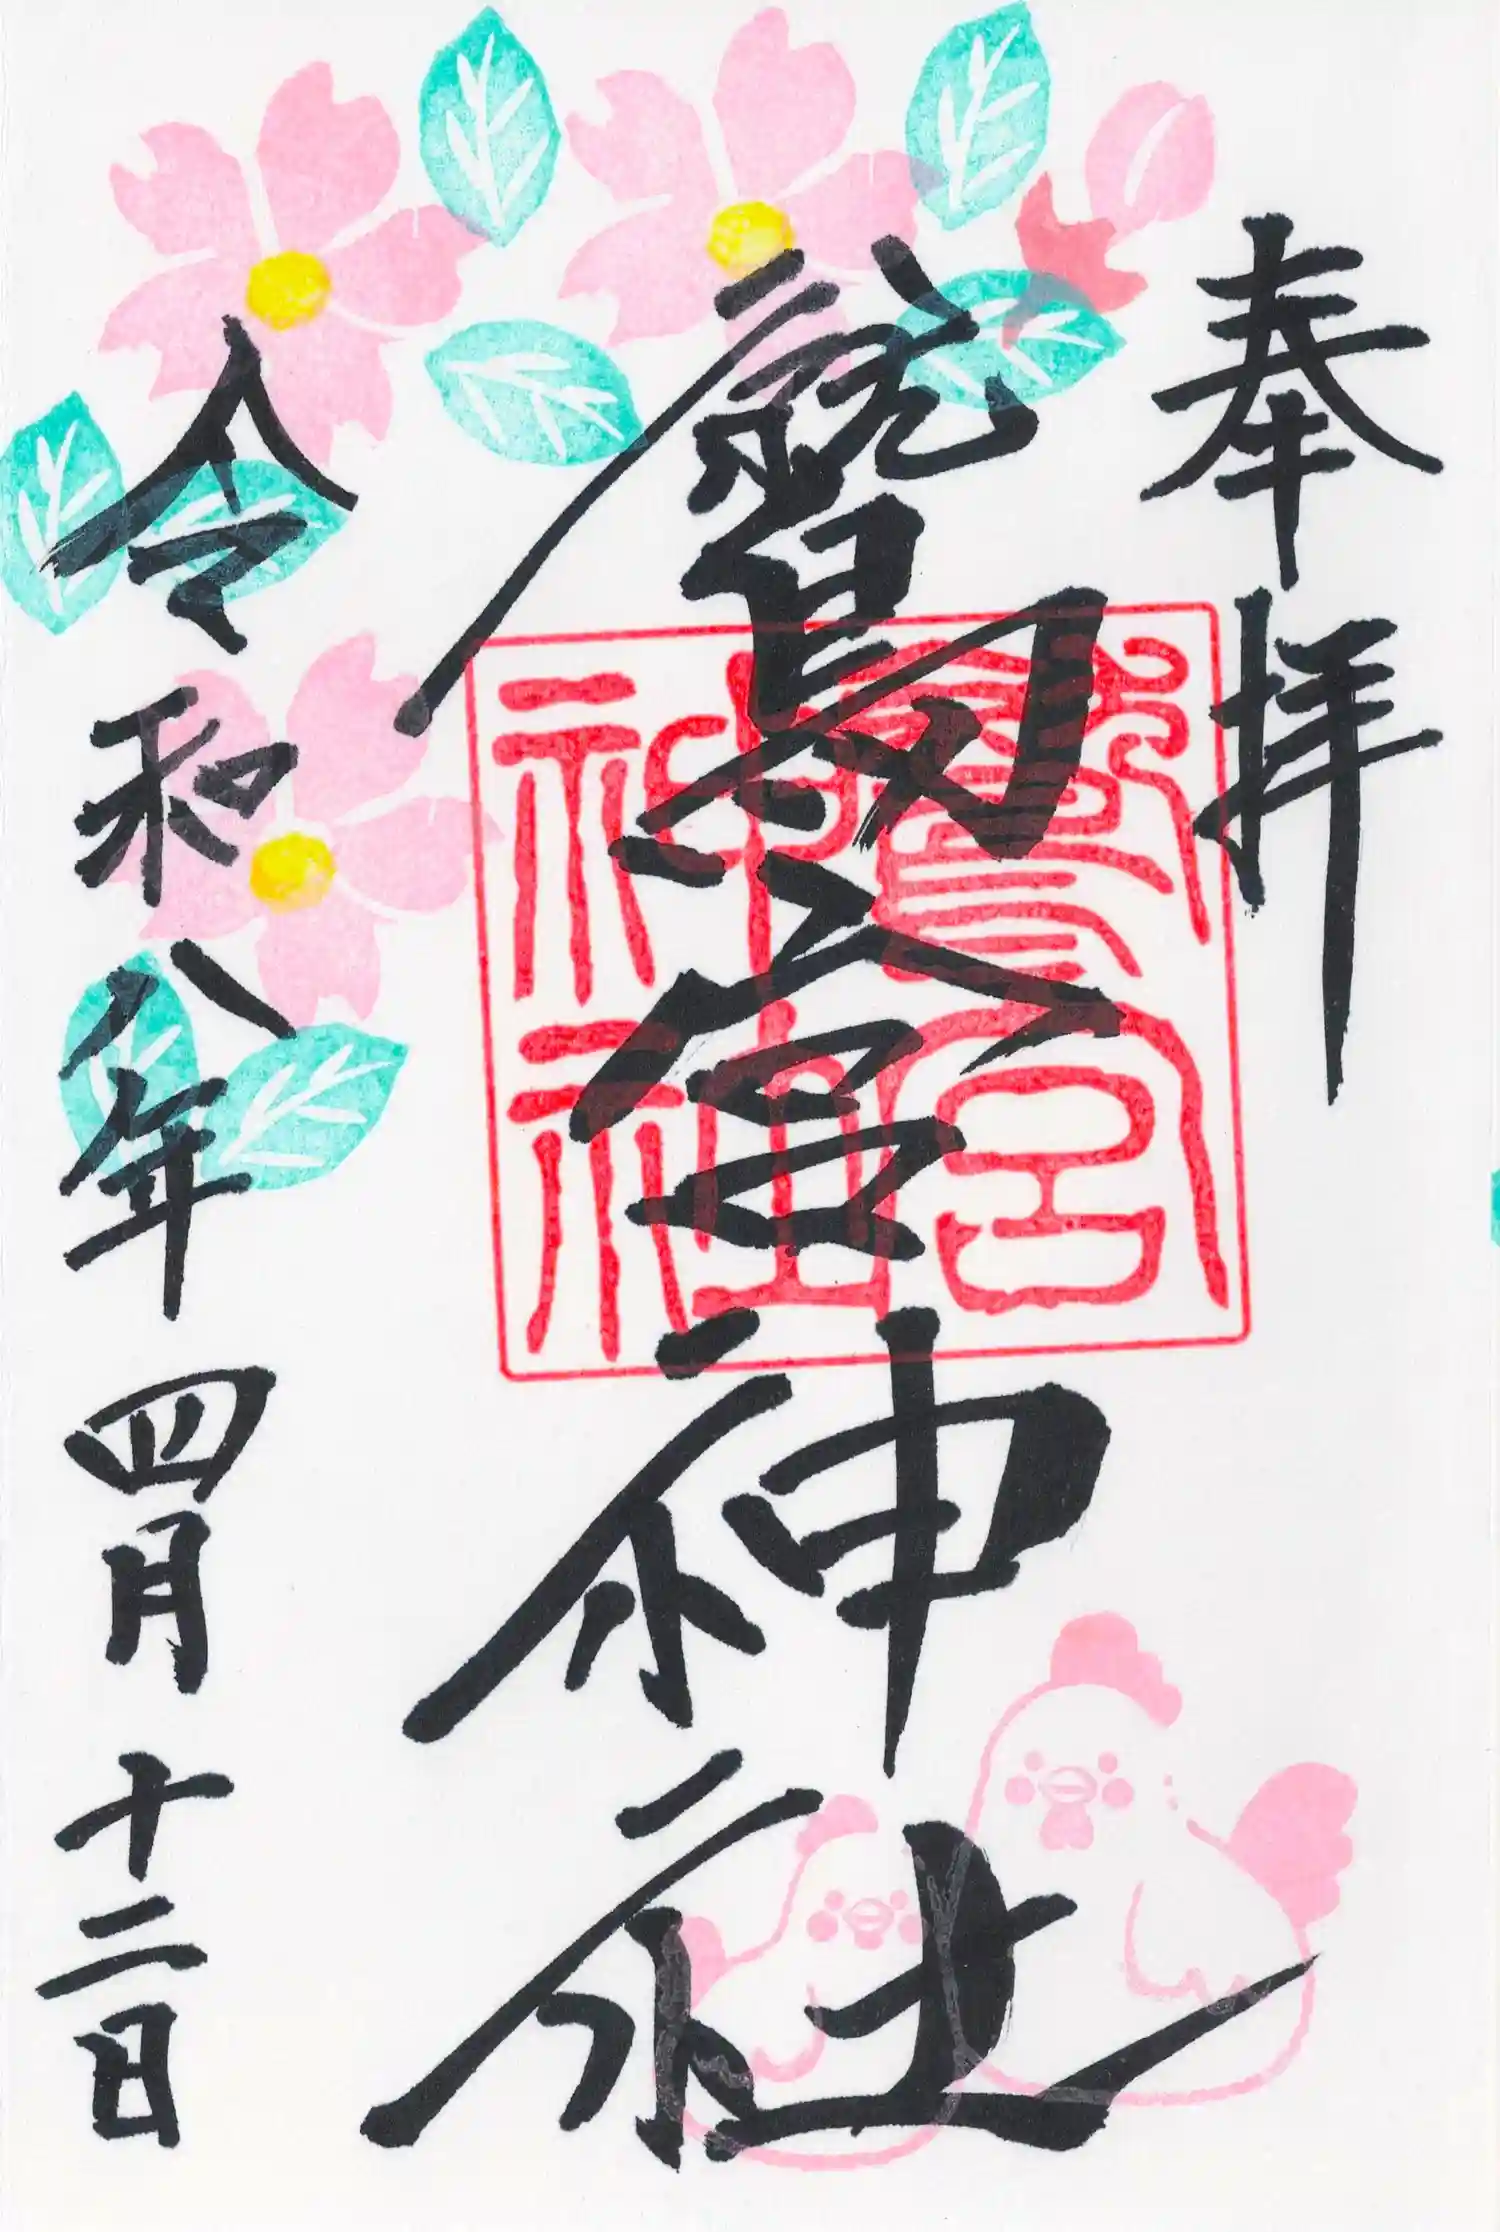 奉拝
鷲宮神社
鷲宮
神社
令和八年四月十二日